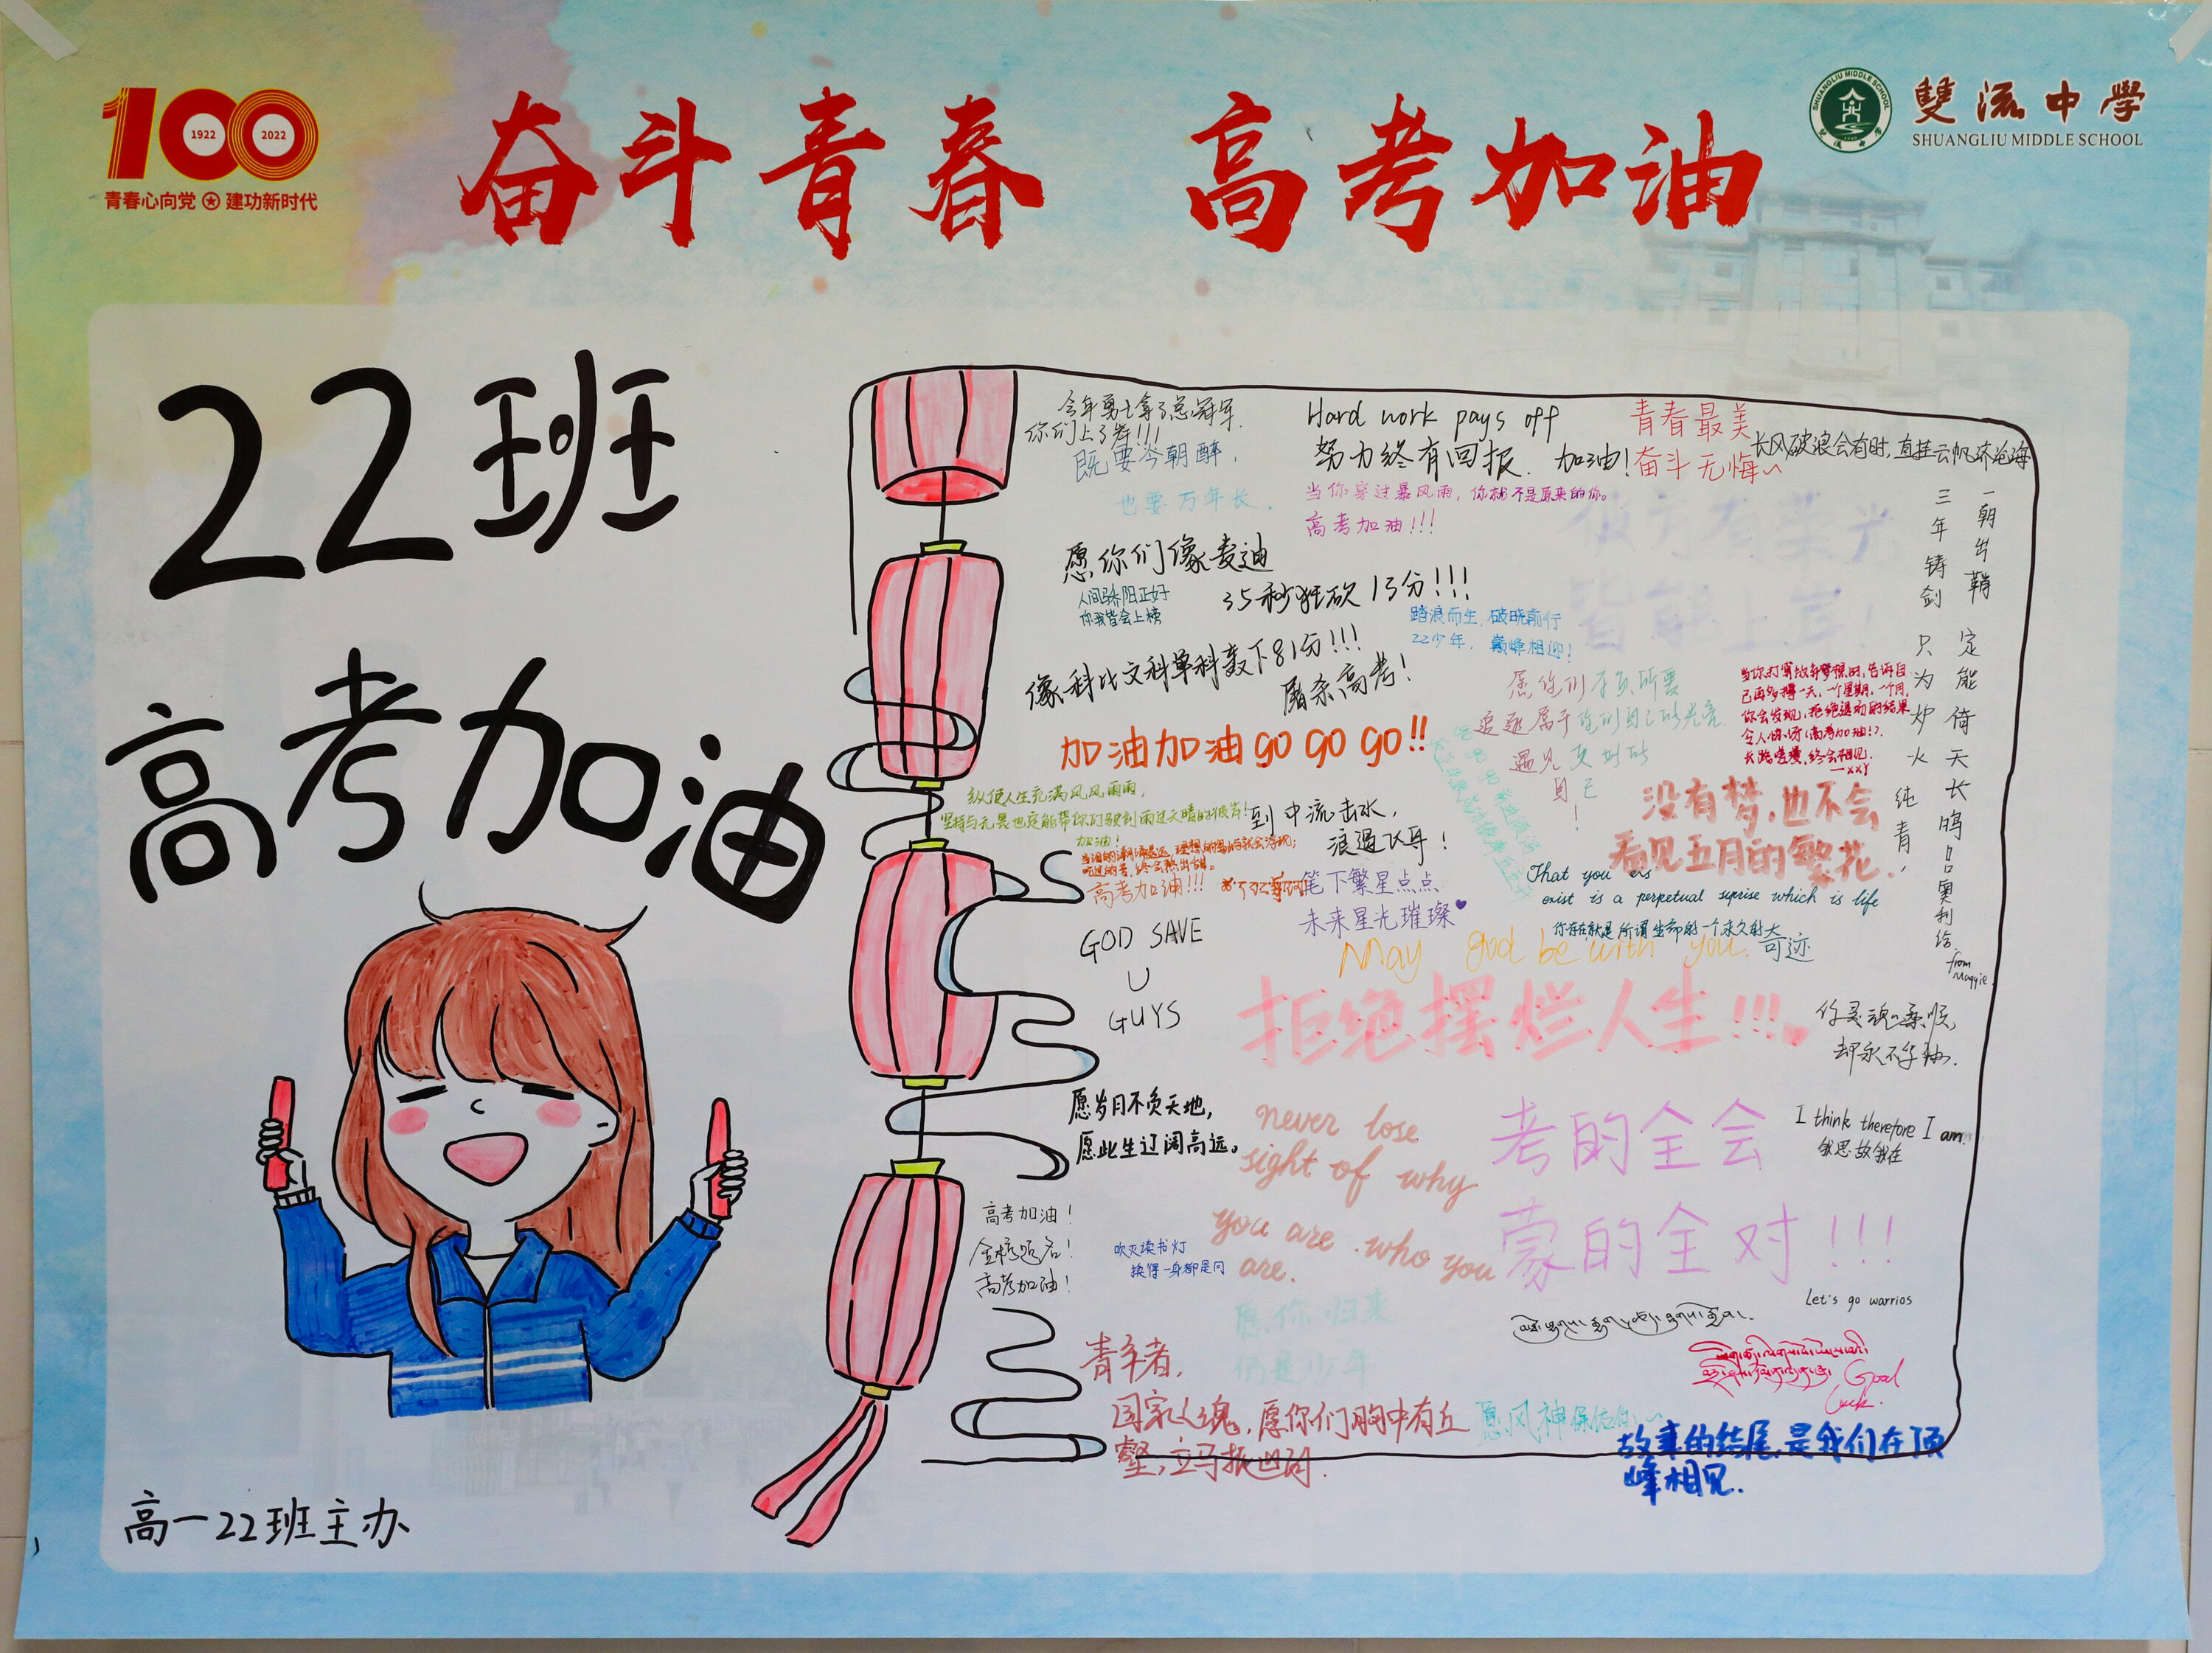 100
1922
2022
青春心向党 建功新时代
奋斗青春 高考加油
SHUANGLIU MIDDLE SCHOOL
雙流中學
SHUANGLIU MIDDLE SCHOOL
22班
高考加油
高一22班主办
今年勇士拿了总冠军,
你们上了岸!!!
既要今朝醉,
也要万年长.
Hard work pays off
努力终有回报. 加油!
青春最美
奋斗无悔~
长风破浪会有时,直挂云帆济沧海
当你穿过暴风雨,你就不是原来的你。
高考加油!!!
一朝出鞘 定能倚天长鸣 奥利给
from Maggie.
三年铸剑 只为炉火纯青,
愿你们像麦迪
35秒狂砍13分!!!
人间骄阳正好
你我皆会上榜
像科比文科单科轰下81分!!!
屠杀高考!
踏浪而生,破晓前行
22少年,巅峰相迎!
皆能上岸!
愿你们不负所要
追逐属于你们自己的光亮
遇见更好的
自己
!
当你打算放弃梦想时,告诉自
己再多撑一天,一个星期,一个月,
你会发现,拒绝退场的结果
令人惊讶(高考加油!).
长路漫漫,终会相见.
—xxy
加油加油 go go go!!
纵使人生充满风风雨雨,
坚持与无畏也定能带你们驶到雨过天晴的彼岸!
加油!
到中流击水,
浪遏飞舟!
没有梦,也不会
看见五月的繁花.
高考加油!!!
笔下繁星点点
未来星光璀璨
That you
exist is a perpetual suprise which is life
你存在就是所谓生命的一个永久的大
奇迹
May god be with you.
GOD SAVE
U
GUYS
拒绝摆烂人生!!!
你灵魂柔顺,
却永不华驯.
愿岁月不负天地,
愿此生辽阔高远。
never lose
sight of why
you are. who you
are.
考的全会
蒙的全对!!!
I think therefore I am.
我思故我在
高考加油!
金榜题名!
高考加油!
吹灭读书灯
换得一身都是闪
愿你归来
仍是少年
Let's go warrios
Good
Luck.
青年者,
国家之魂,愿你们胸中有丘
壑,立马振山河.
愿风神保佑你~
故事的结尾,是我们在顶
峰相见.